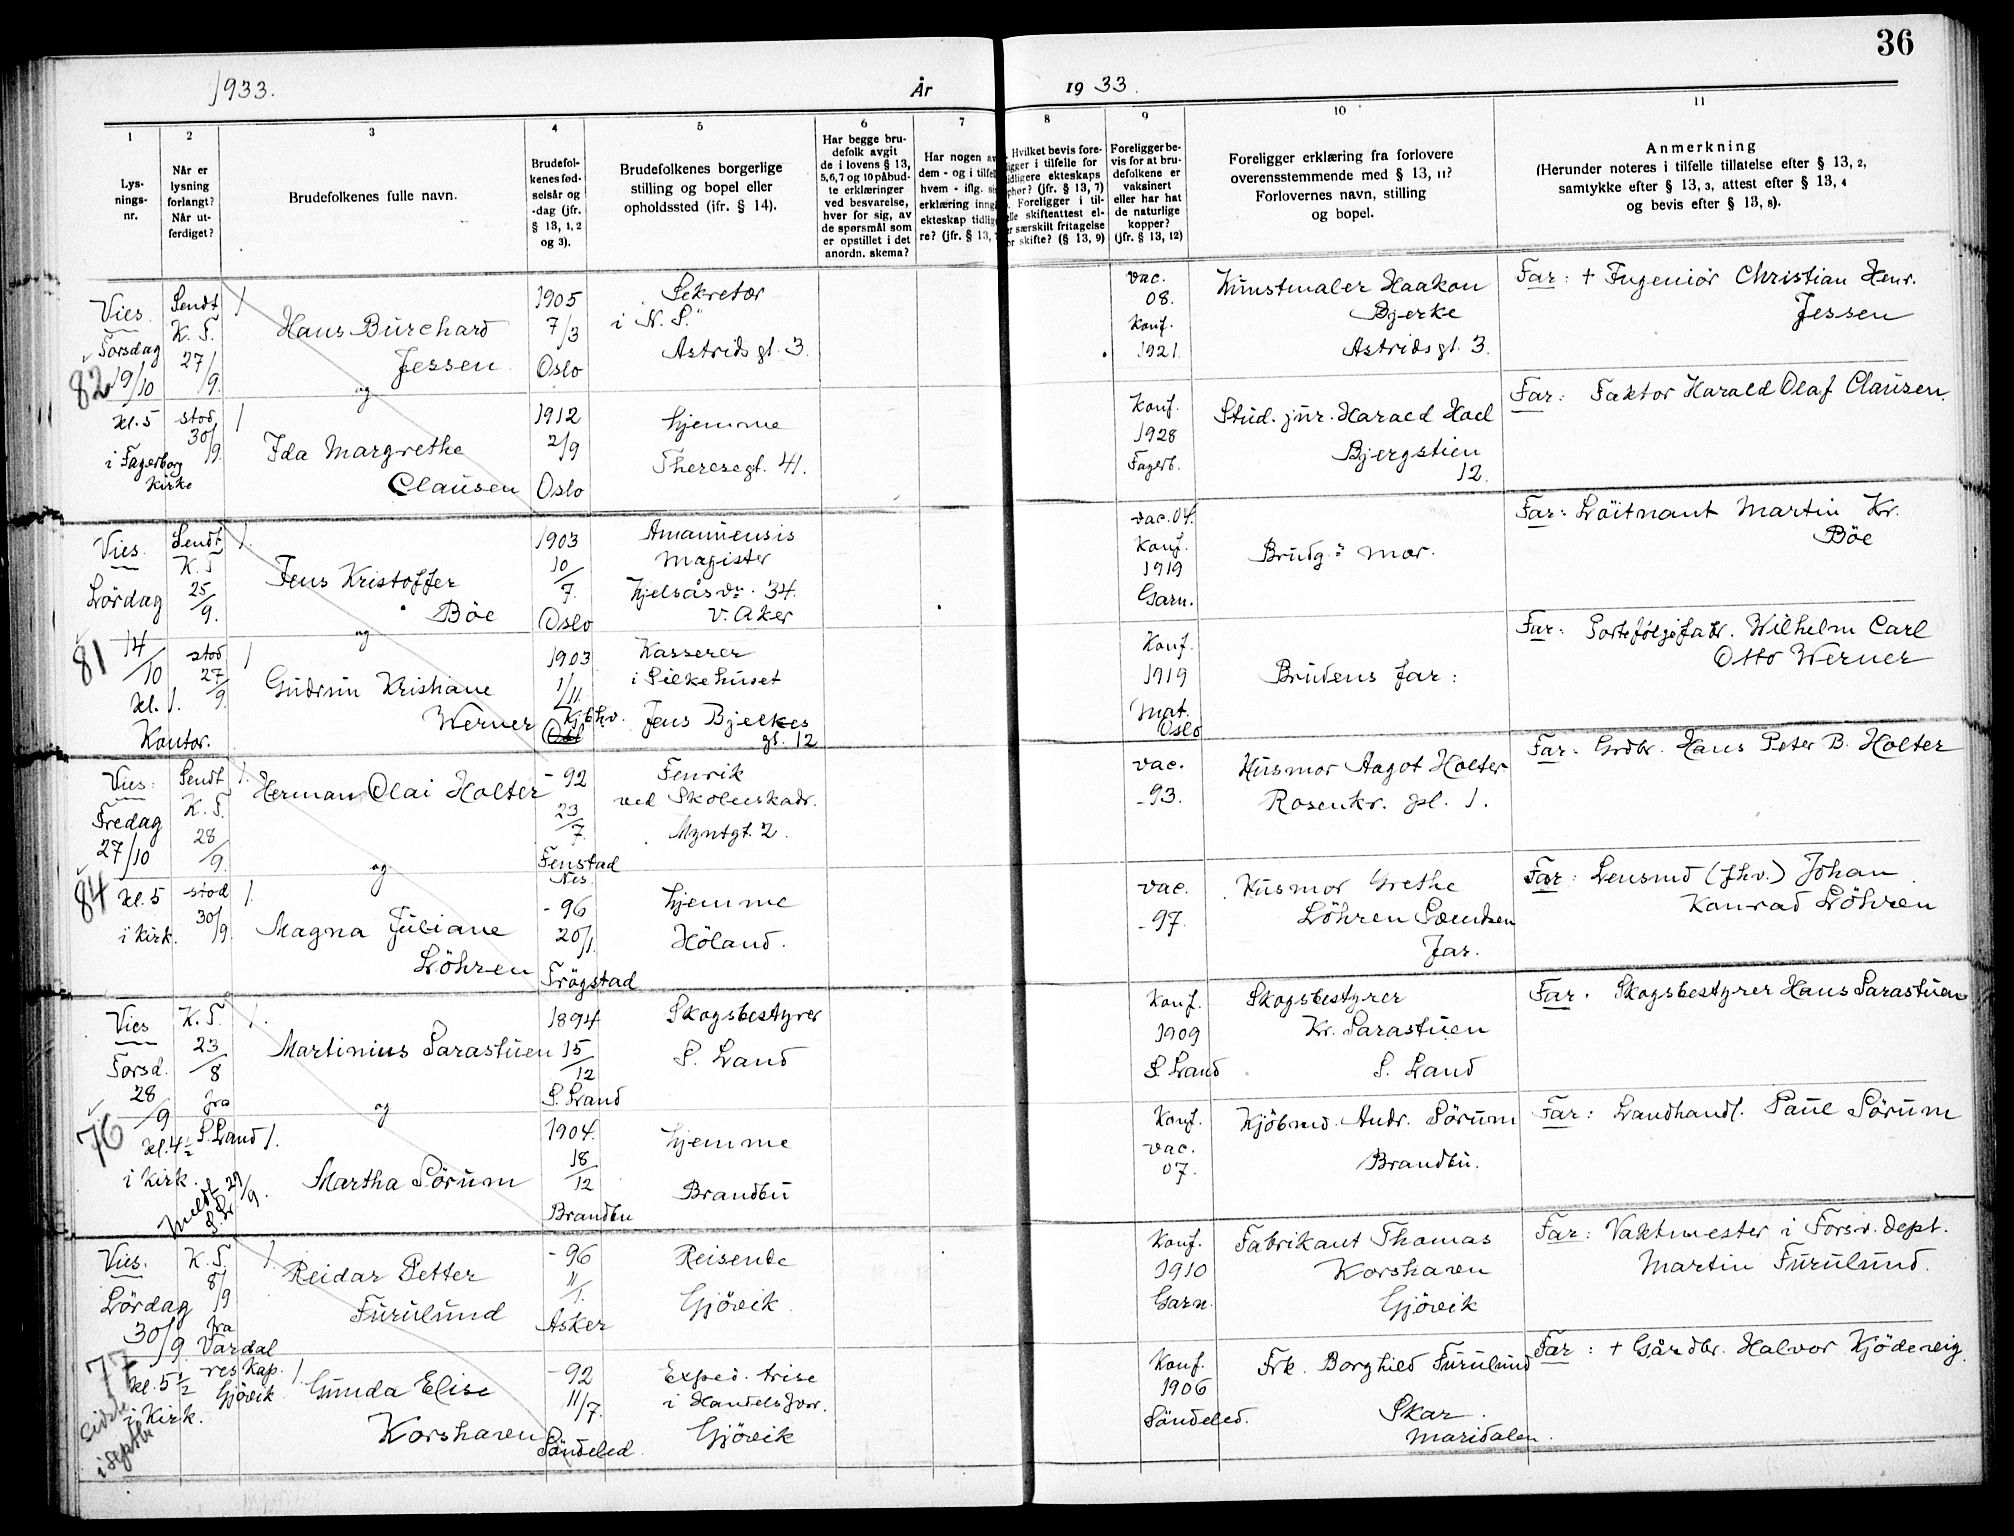 36
1933.
År
19 33.
1
2
3
4
5
6
7
8
9
10
11
Lys-
nings-
nr.
Når er
lysning
forlangt?
Når ut-
ferdiget?
Brudefolkenes fulle navn.
Brudefol-
kenes fød-
selsår og
-dag (jfr.
§ 13, 1, 2
og 3).
Brudefolkenes borgerlige
stilling og bopel eller
opholdssted (ifr. § 14).
Har begge bru-
defolk avgit
de i lovens § 13,
5,6,7 og 10 påbud-
te erklæringer
ved besvarelse,
hver for sig, av
de spørsmål som
er opstillet i det
anordn. skema?
Har nogen av
dem - og i tilfel
hvem - iflg. si
erklæring inng
ekteskap tidlig
re? (jfr. § 13,
Hvilket bevis fore-
ligger i tilfelle for
tidligere ekteskaps
ophør? (jfr. § 13, 7)
Foreligger i til-
felle skifteattest el-
er særskilt fritagelse
or skifte? (§ 13, 9)
Foreligger be-
vis for at bru-
defolkene er
vaksinert
eller har hat
de naturlige
kopper?
(jfr. § 13, 12)
Foreligger erklæring fra forlovere
overensstemmende med § 13, 11?
Forlovernes navn, stilling
og bopel.
Anmerkning
(Herunder noteres i tilfelle tillatelse efter § 13, 2,
samtykke efter § 13, 3, attest efter § 13, 4
og bevis efter § 13, 8).
82
Vies.
Torsdag
19/10
kl. 5
i Fagerborg
Kirke
Sendt
K. T.
27/9.
stod
30/9.
1
Hans Burchard
Jessen
og
1
Ida Margrethe
Clausen
1905
7/3
Oslo
1912
2/9
Oslo
Sekretær
i N. S."
Astrids gt. 3.
hjemme
Theresegt. 41.
vac.
08.
Konf.
1921.
Konf.
1928
Fagerb.
Kunstmaler Haakon
Bjerke
Astridsgt. 3.
Stud. jur. Harald Hoel
Bjergstien
12.
Far: + Ingeniør Christian Henr.
Jessen
Far: Faktor Harald Olaf Clausen.
81
Vies.
Lördag
14/10
kl. 1.
Kontor.
Sendt
K. T
25/9.
stod
27/9.
1.
Jens Kristoffer
Böe
og
1
Gudrun Kristiane
Werner
1903
10/7.
Oslo
1903
1/11.
Kjbhv.
Amanuensis
Magister
Kjelsåsv. 34.
v. Aker
Kasserer
i Silkehuset
Jens Bjelkes
gt. 12
vac. 04.
Konf.
1919
Garn.
Konf.
1919
Mat.
Oslo
Brudg.s mor.
Brudens far:
Far: Löitnant Martin Kr.
Böe
Far: Portefölgefabr. Wilhelm Carl
Otto Werner
84
Vies:
Fredag
27/10
kl. 5
i Kirk.
Sendt
K. T.
28/9.
stod
30/9.
1.
Herman Olai Holter
og
1.
Magna Juliane
Löhren
- 92
23/7.
Fenstad
Nes.
- 96
20/1.
Trögstad
Fenrik
ved Skoleeskadr.
Myntgt. 2.
hjemme
Höland.
vac.
- 93.
vac.
- 97.
Husmor Aagot Holter
Rosenkr. gt. 1.
Husmor Grethe
Löhren
Jar.
Far: Grdbr. Hans Peter B. Holter
Far: Lensmd (fhv.) Johan
Konrad Löhren
76
Vies
Torsd.
28/9
kl. 4½
i Kirk.
K. T.
23/8
fra
S. Land
Meldt 29/9.
S. L.
1.
Martinius Sarastuen
og
1.
Martha Sörum
1894
15/12
S. Land
1904.
18/12
Brandbu
Skogsbestyrer
S. Land
hjemme
Brandbu
Konf.
1909
S. Land
Konf.
vac.
07.
Skogsbestyrer
Kr. Sarastuen
S. Land
Kjöbmd. Andr. Sörum
Brandbu.
Far. Skogsbestyrer Hans Sarastuen
Far: Landhandl. Paul Sörum
77
Vies.
Lördag
30/9.
kl. 5½
i Kirk.
Sidste
i Septbr
K. T.
8/9
fra
Vardal
res kap.
Gjövik
1
Reidar Petter
Furulund
1.
Gunda Elise
Korshavn
- 96
11/1.
Asker
- 92
11/7.
Söndeled.
Reisende
Gjövik.
Exped. trise
i Handelsfor.
Gjövik
Konf.
1910
Garn.
Konf.
1906
Söndeled.
Fabrikant Thomas
Korshavn
Gjövik
Frk. Borghild Furulund
Skar
Maridalen.
Far: Vaktmester i Forsv. dept.
Martin Furulund.
Far: + Gårdbr. Halvor Kjödevig.